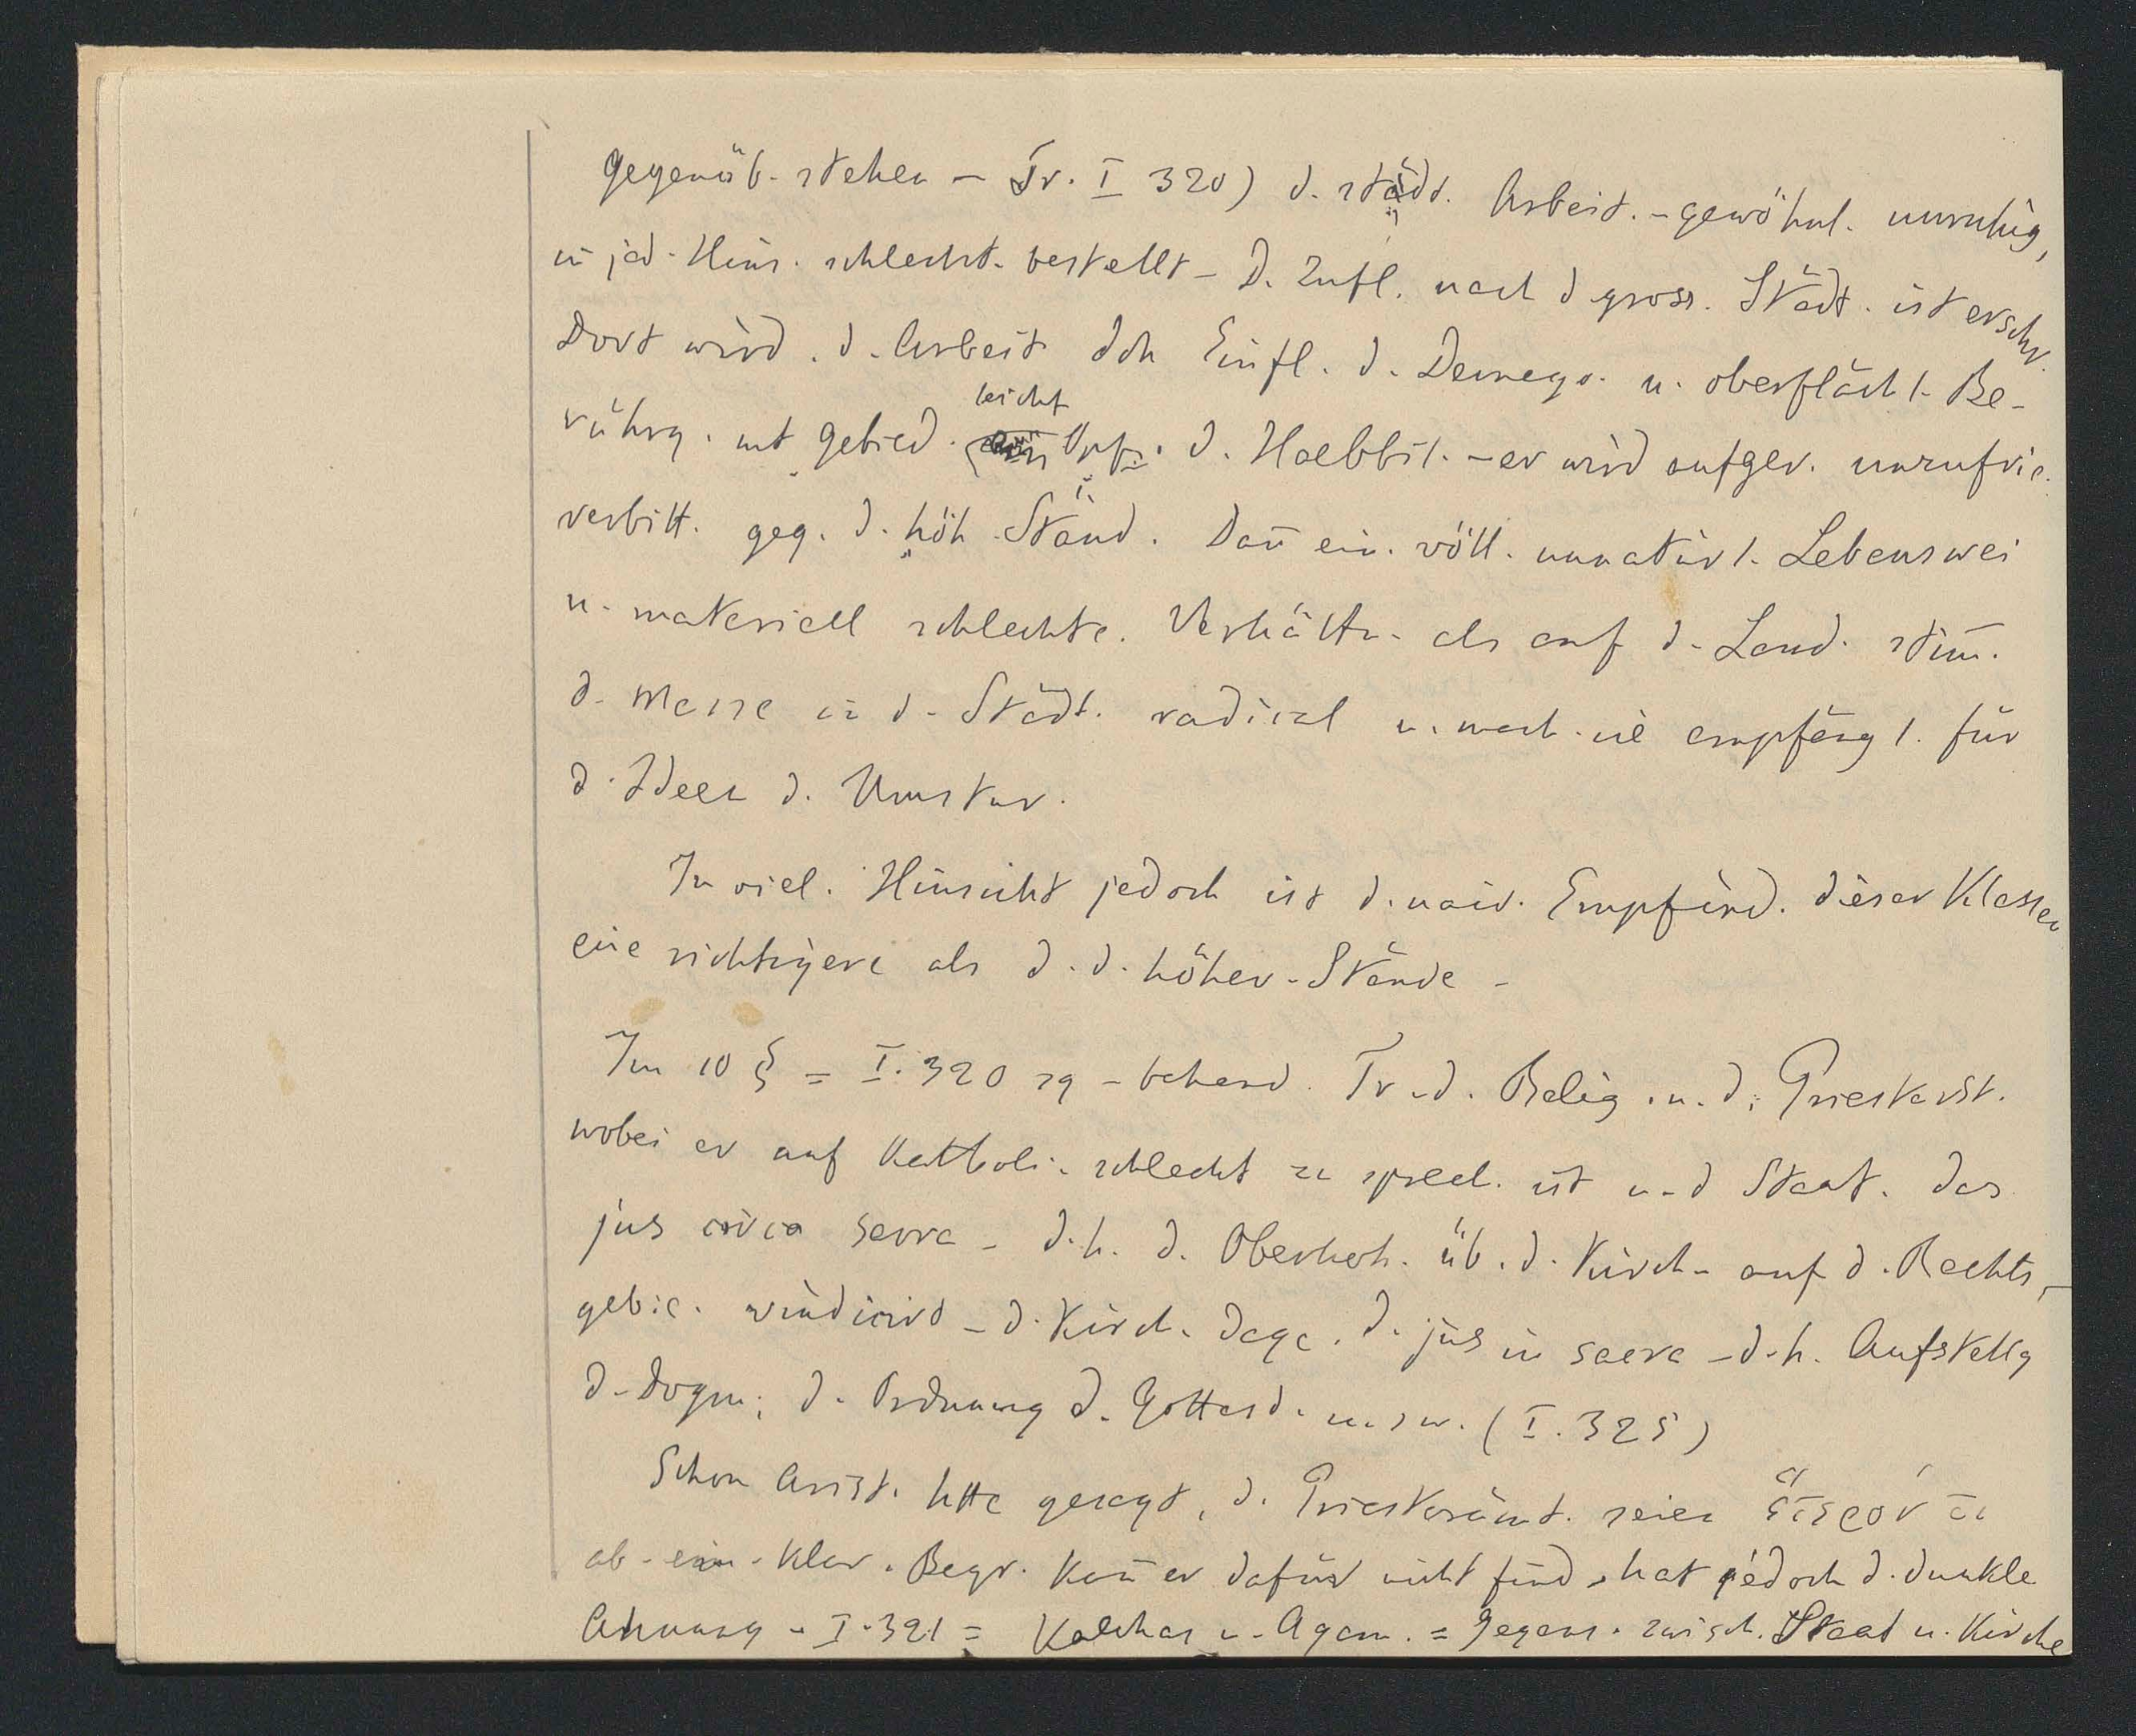 gegenüb. stehen – Tr. I 320) d. städt. Arbeit. – gewöhnl. unruhig,
in jed. Hins. schlecht. bestellt – D. Zufl. nach d gross. Städt. ist erschr.
Dort wird. d. Arbeit dch Einfl. d. Demago. u. oberflächl. Be-
rührg. mt gebild. leicht Opf. d. Halbbil. – er wird aufger. unzufrie.
verbitt. geg. d. höh. Ständ. Dan̄ ein. völl. unnatürl. Lebenswei
u. materiell schlechte. Verhältn. als auf d. Land. stim̄.
d. Masse in d. Städt. radical u. mach. sie empfängl. für
d. Ideen d. Umstur.
In viel. Hinsicht jedoch ist d. naiv. Empfind. dieser Klassen
eine richtigere als d. d. höher. Stände –
Im 10 § = I. 320 sq – behand. Tr. d. Relig. u. d. Priesterst.
wobei er auf Katholi. schlecht zu sprech. ist u. d Staat. das
jus circa sacra – d. h. d. Oberhoh. üb. d. Kirch. auf d. Rechts-
gebie. vindicirt – d. Kirch. dage. d. jus in sacra – d. h. Aufstellg
d. Dogm; d. Ordnung d. Gottesd. u. s w. (I. 325)
Schon Arist. htte gesagt, d. Priesterämt. seien ἕτερόν τι
ab. ein. klar. Begr. kan̄ er dafür nicht find, hat jedoch d. dunkle
Ahnung – I. 321 = Kalchas u. Agam. = Gegens. zwisch. Staat u. Kirche